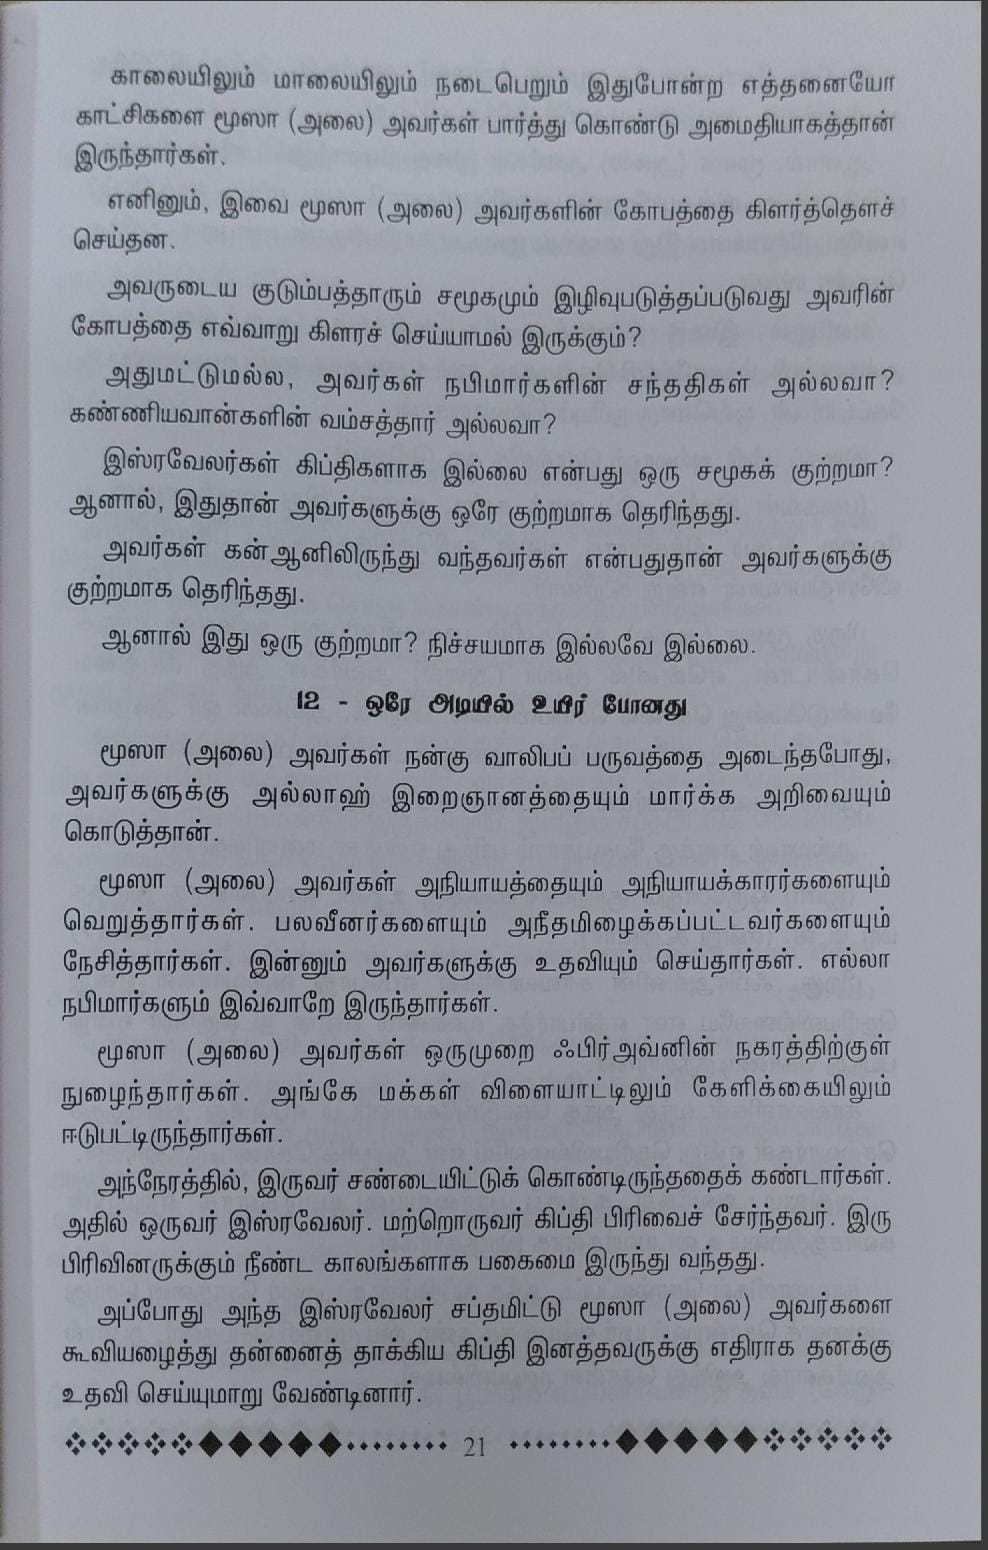 காலையிலும் மாலையிலும் நடைபெறும் இதுபோன்ற எத்தனையோ
காட்சிகளை மூஸா (அலை) அவர்கள் பார்த்து கொண்டு அமைதியாகத்தான்
இருந்தார்கள்.
எனினும், இவை மூஸா (அலை) அவர்களின் கோபத்தை கிளர்த்தெளச்
செய்தன.
அவருடைய குடும்பத்தாரும் சமூகமும் இழிவுபடுத்தப்படுவது அவரின்
கோபத்தை எவ்வாறு கிளரச் செய்யாமல் இருக்கும்?
அதுமட்டுமல்ல, அவர்கள் நபிமார்களின் சந்ததிகள் அல்லவா?
கண்ணியவான்களின் வம்சத்தார் அல்லவா?
இஸ்ரவேலர்கள் கிப்திகளாக இல்லை என்பது ஒரு சமூகக் குற்றமா?
ஆனால், இதுதான் அவர்களுக்கு ஒரே குற்றமாக தெரிந்தது.
அவர்கள் கன்ஆனிலிருந்து வந்தவர்கள் என்பதுதான் அவர்களுக்கு
குற்றமாக தெரிந்தது.
ஆனால் இது ஒரு குற்றமா? நிச்சயமாக இல்லவே இல்லை.
12 - ஒரே அடியில் உயிர் போனது
மூஸா (அலை) அவர்கள் நன்கு வாலிபப் பருவத்தை அடைந்தபோது,
அவர்களுக்கு அல்லாஹ் இறைஞானத்தையும் மார்க்க அறிவையும்
கொடுத்தான்.
மூஸா (அலை) அவர்கள் அநியாயத்தையும் அநியாயக்காரர்களையும்
வெறுத்தார்கள். பலவீனர்களையும் அநீதமிழைக்கப்பட்டவர்களையும்
நேசித்தார்கள். இன்னும் அவர்களுக்கு உதவியும் செய்தார்கள். எல்லா
நபிமார்களும் இவ்வாறே இருந்தார்கள்.
மூஸா (அலை) அவர்கள் ஒருமுறை ஃபிர்அவ்னின் நகரத்திற்குள்
நுழைந்தார்கள். அங்கே மக்கள் விளையாட்டிலும் கேளிக்கையிலும்
ஈடுபட்டிருந்தார்கள்.
அந்நேரத்தில், இருவர் சண்டையிட்டுக் கொண்டிருந்ததைக் கண்டார்கள்.
அதில் ஒருவர் இஸ்ரவேலர். மற்றொருவர் கிப்தி பிரிவைச் சேர்ந்தவர். இரு
பிரிவினருக்கும் நீண்ட காலங்களாக பகைமை இருந்து வந்தது.
அப்போது அந்த இஸ்ரவேலர் சப்தமிட்டு மூஸா (அலை) அவர்களை
கூவியழைத்து தன்னைத் தாக்கிய கிப்தி இனத்தவருக்கு எதிராக தனக்கு
உதவி செய்யுமாறு வேண்டினார்.
21